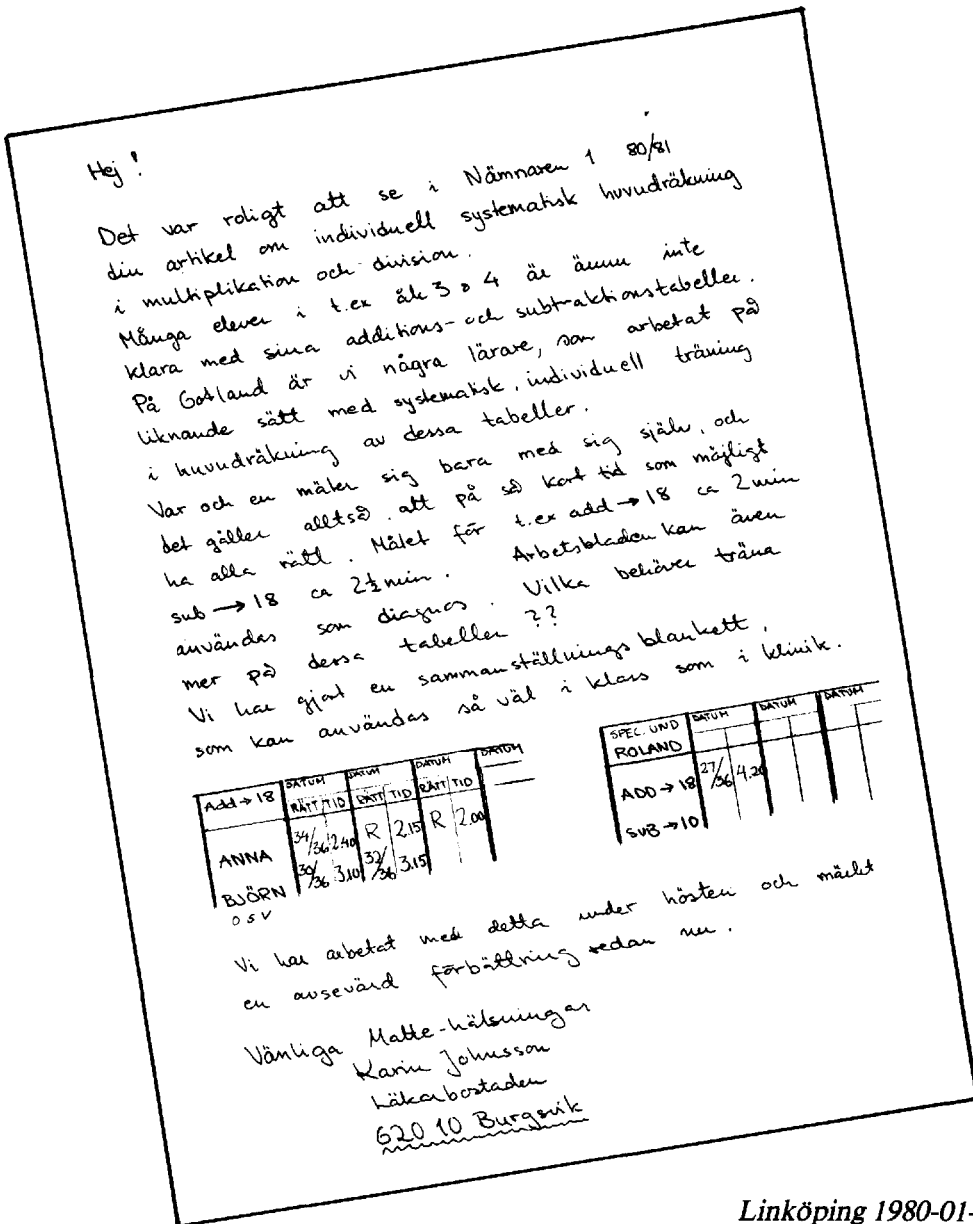 Hej!
Det var roligt att se i Nämnaren 1 80/81
din artikel om individuell systematisk huvudräkning
i multiplikation och division.
Många elever i t.ex åk 3 o 4 är ännu inte
klara med sina additions- och subtraktionstabeller.
På Gotland är vi några lärare, som arbetat på
liknande sätt med systematisk, individuell träning
i huvudräkning av dessa tabeller.
Var och en mäter sig bara med sig själv, och
det gäller alltså att på så kort tid som möjligt
ha alla rätt. Målet för t.ex add → 18 ca 2 min
sub → 18 ca 2½ min. Arbetsbladen kan även
användas som diagnos. Vilka behöver träna
mer på dessa tabeller ??
Vi har gjort en sammanställningsblankett,
som kan användas så väl i klass som i klinik.
Add → 18 DATUM DATUM DATUM DATUM
RÄTT TID RÄTT TID RÄTT TID
ANNA 34/36 2.40 R 2.15 R 2.00
BJÖRN 30/36 3.10 32/36 3.15
O S V
SPEC. UND DATUM DATUM DATUM
ROLAND
ADD → 18 27/36 4.20
SUB → 10
Vi har arbetat med detta under hösten och märkt
en avsevärd förbättring redan nu.
Vänliga Matte-hälsningar
Karin Johnsson
Läkarbostaden
620 10 Burgsvik
Linköping 1980-01-